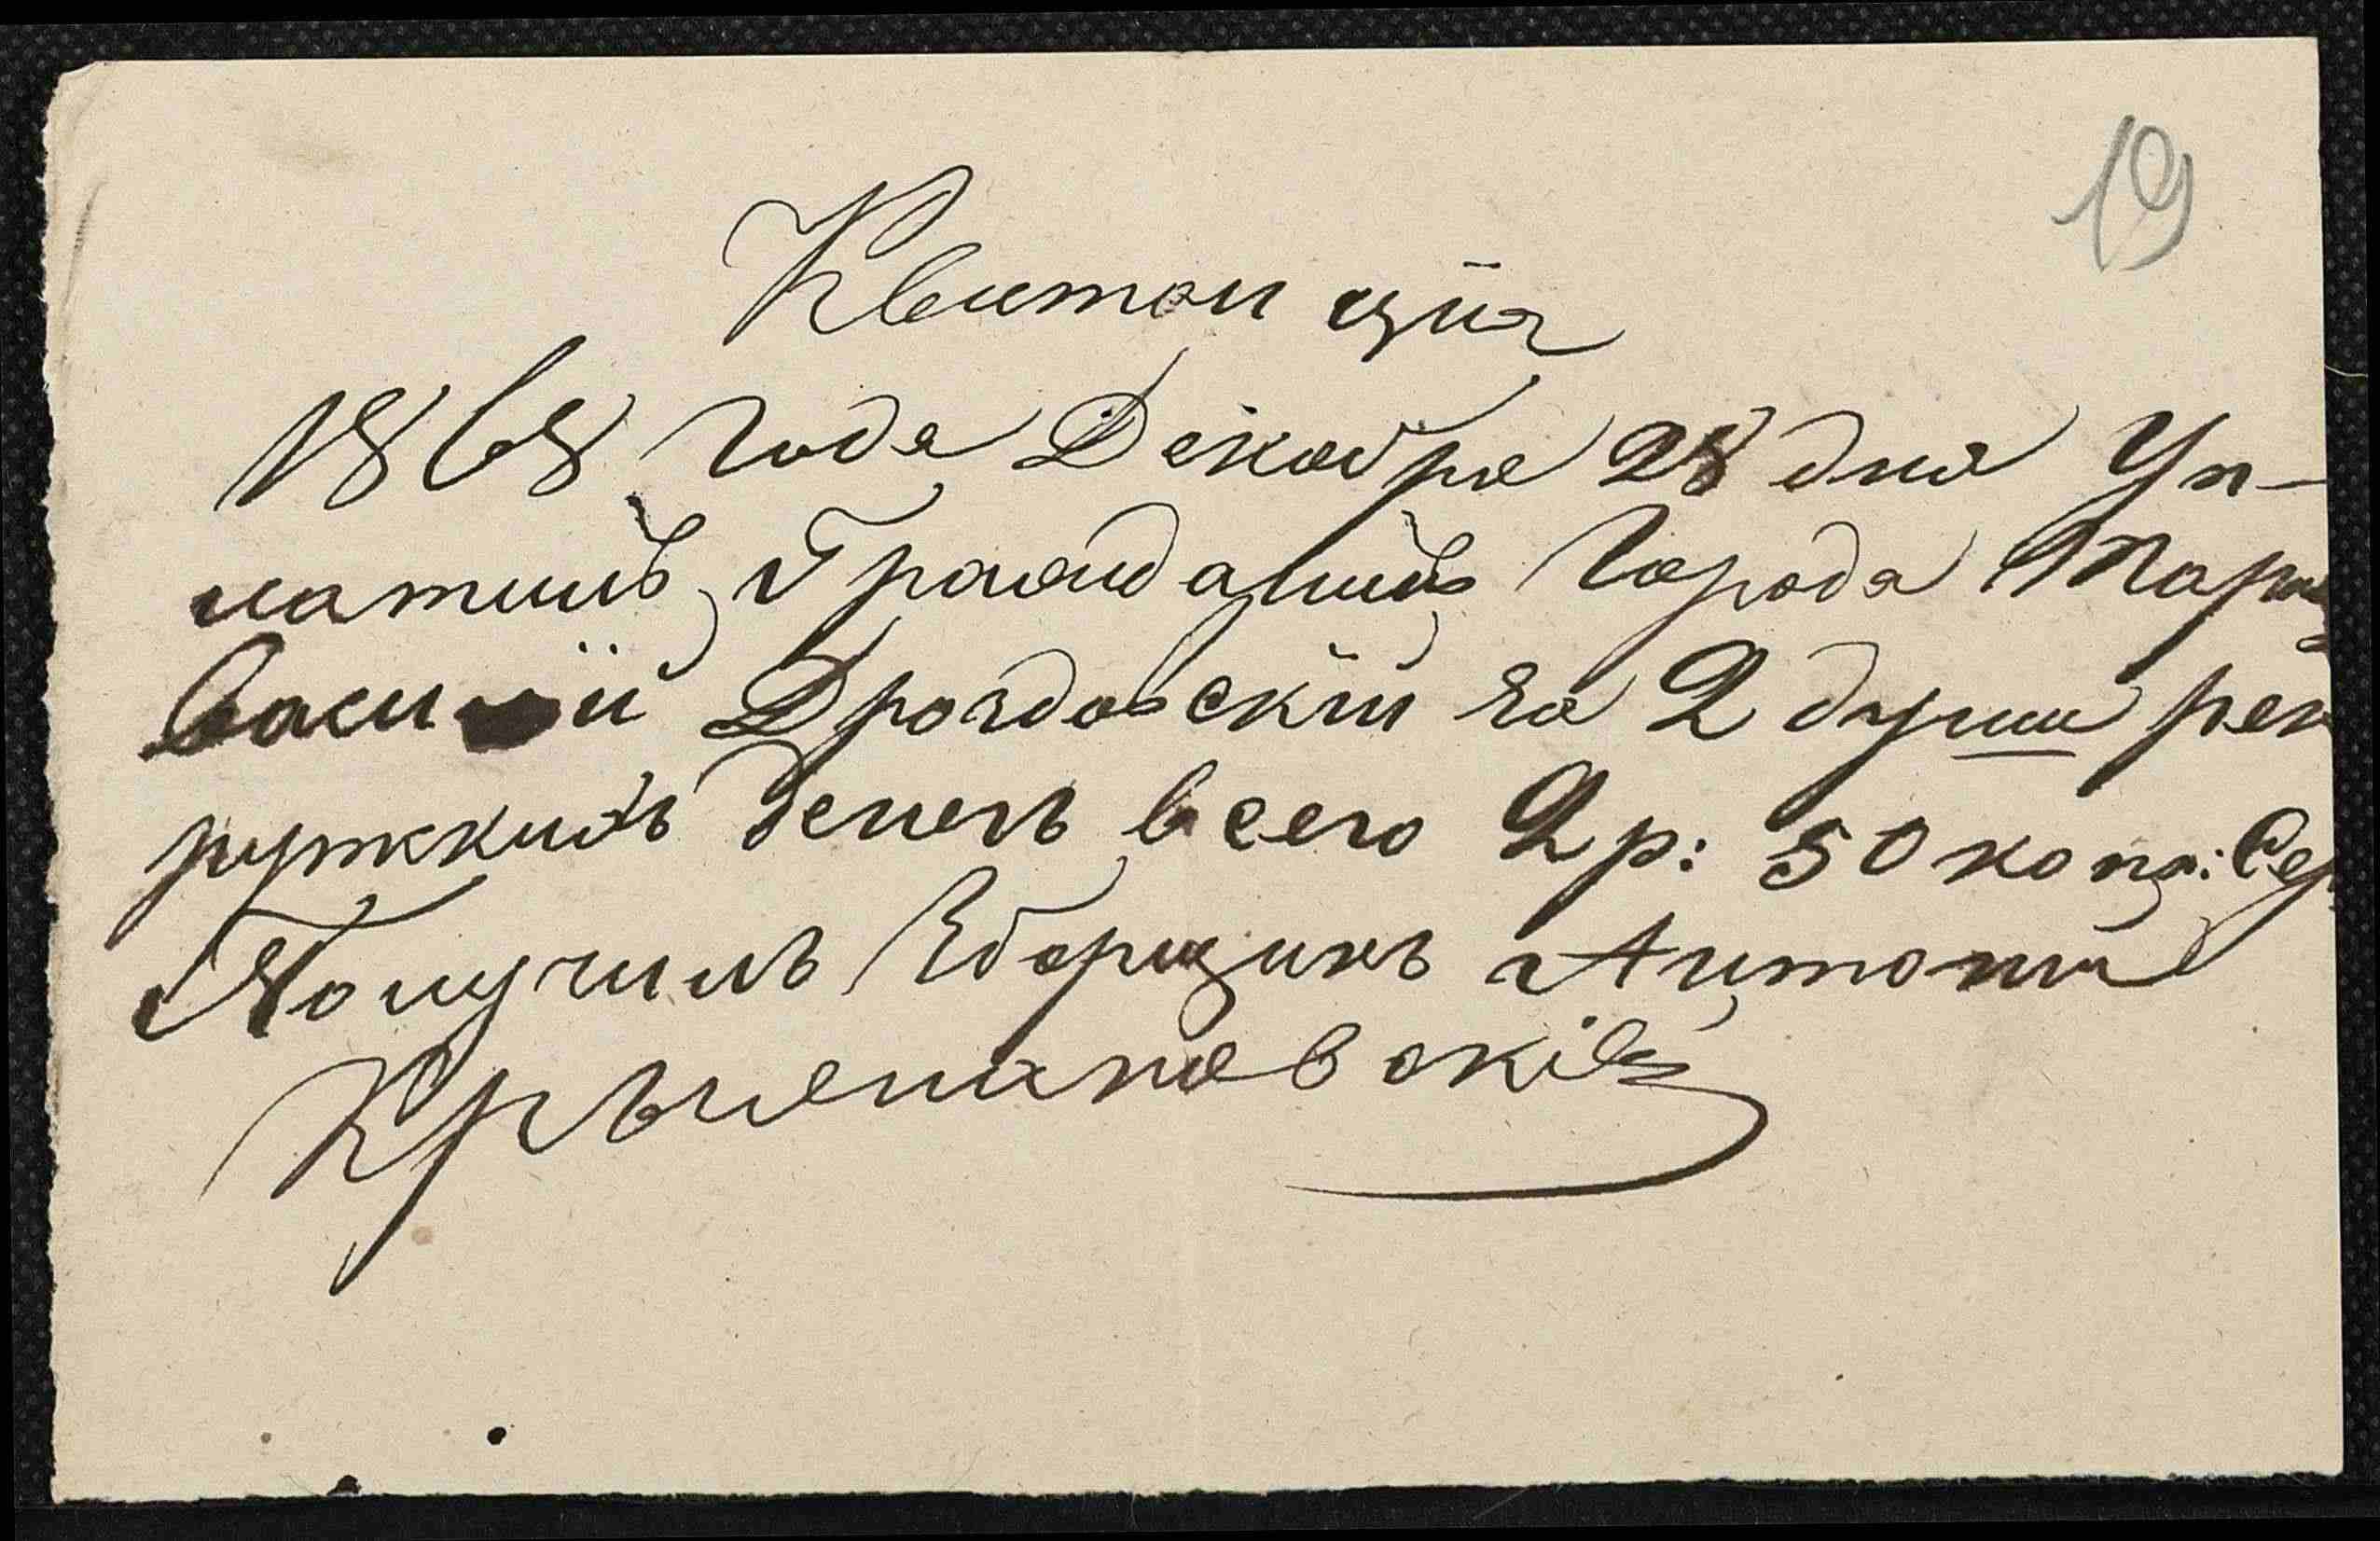 19
Квитанція
1868 Года Декабря 28 дня Уп-
латилъ Гражданинъ Города
Василій Дроздовскій За 2 души рек
рутскихъ Денегъ всего 2 р: 50 коп: Сер
Получилъ Зборщикъ Антоній